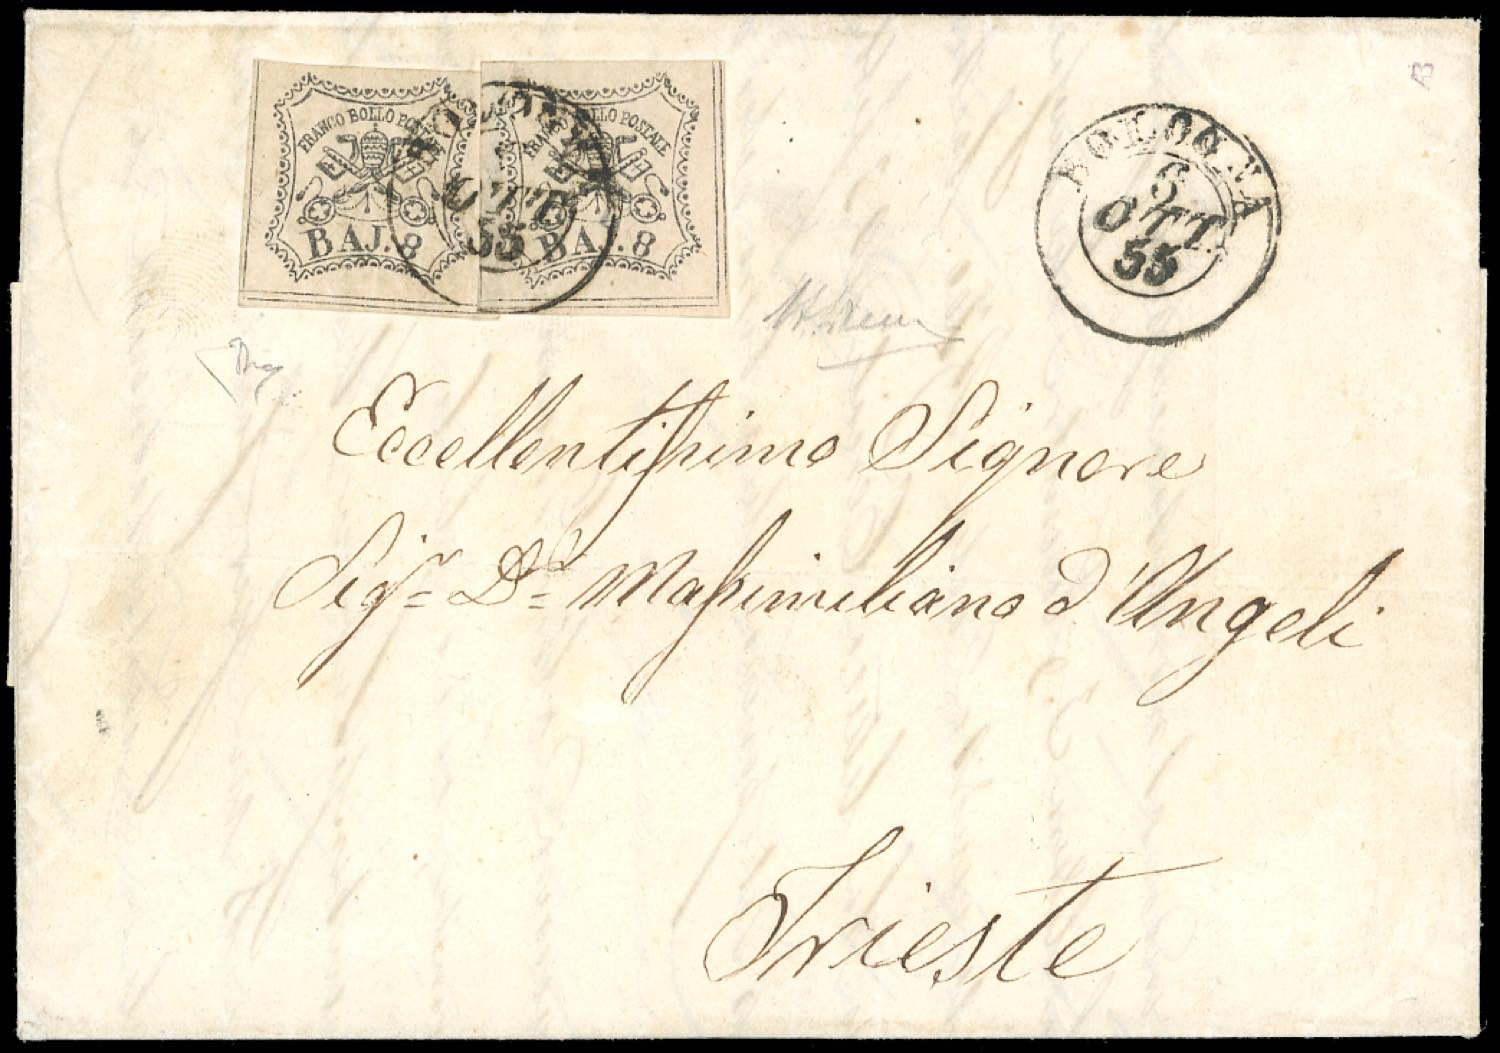 FRANCO BOLLO POSTALE
BAJ. 8
BAJ. 8
BOLOGNA
6
OTT.
55
Eccellentissimo Signore
Sigr. Dr. Massimiliano d'Angeli
Trieste